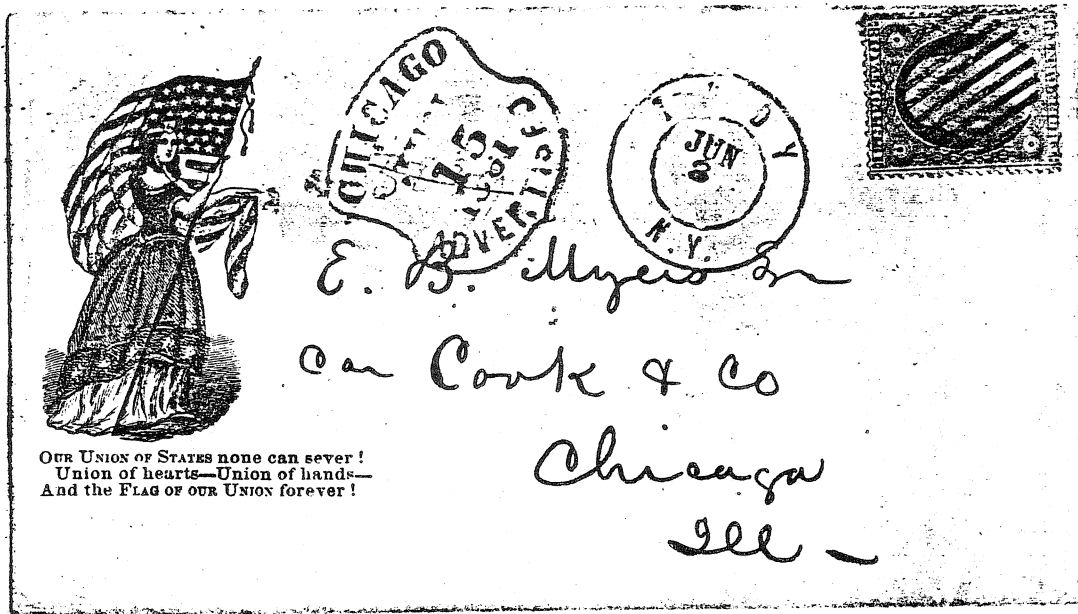 CHICAGO
15
1861
ADVERTISED
JUN
N.Y.
E. B. Myers
Cook & Co
Chicago
Ill -
OUR UNION OF STATES none can sever!
Union of hearts—Union of hands—
And the FLAG OF OUR UNION forever!